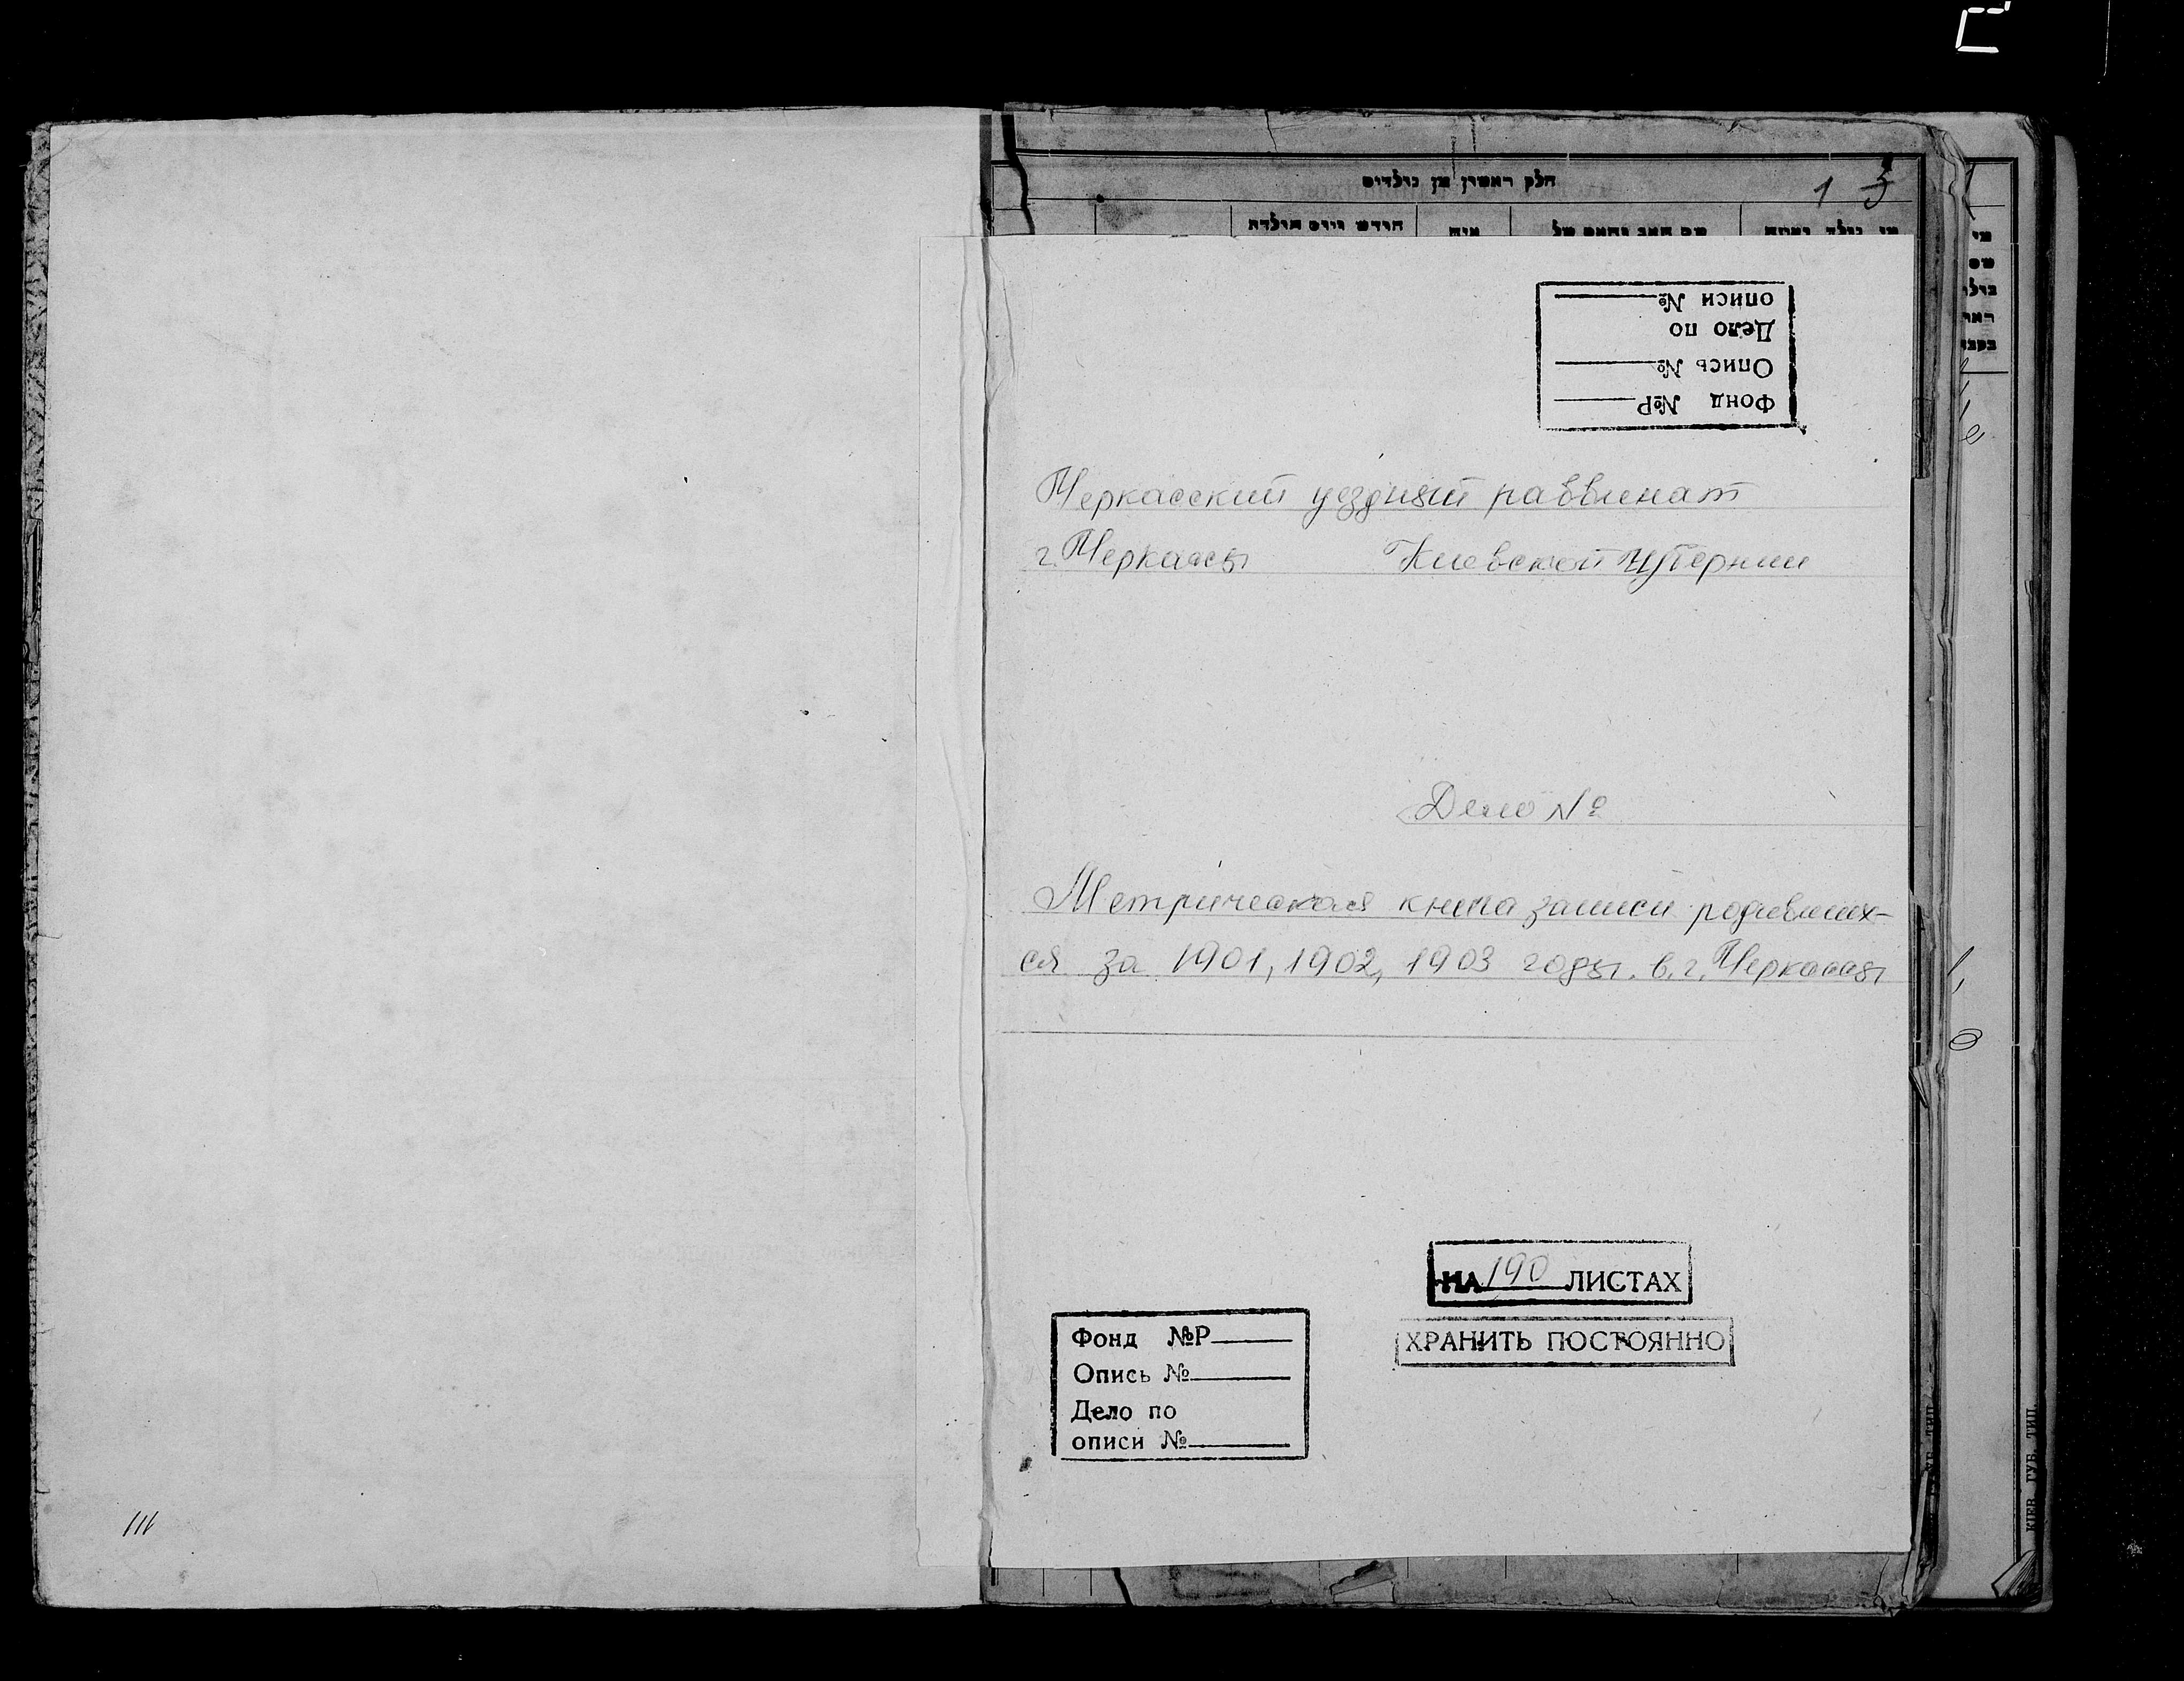 חלק ראשון מן נולדים
1 3
חודש ויום תולדת
איה
описи №
Дело по
Опись №
Фонд №Р
Черкасский уездный раввинат
г. Черкассы Киевской губернии
Дело №
Метрическая книга записи родивших-
ся за 1901, 1902, 1903 годы. в. г. Черкассы
НА 190 ЛИСТАХ
ХРАНИТЬ ПОСТОЯННО
Фонд №Р
Опись №
Дело по
описи №
КІЕВ. ГУБ. ТИП.